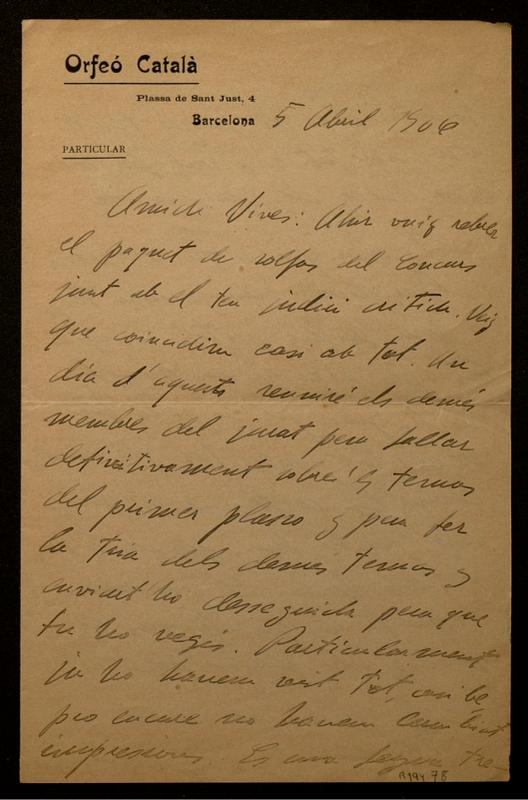 Orfeó Català
Plassa de Sant Just, 4
Barcelona
5 Abril 1906
PARTICULAR
Amich Vives: Ahir vaig rebrer
el paquet de solfas del Concurs
junt ab el teu judici critich. Veig
que coincidim casi ab tot. Un
dia d'aquets reuniré els demés
membres del jurat pera fallar
definitivament sobre 'ls temas
del primer plasso y pera fer
la tria dels demés temas y
enviart ho desseguida pera que
tu ho vegis. Particularment
ja ho havem vist tot, casi bé,
pro encara no havem cambiat
impresions. Es una fayna
R194 78